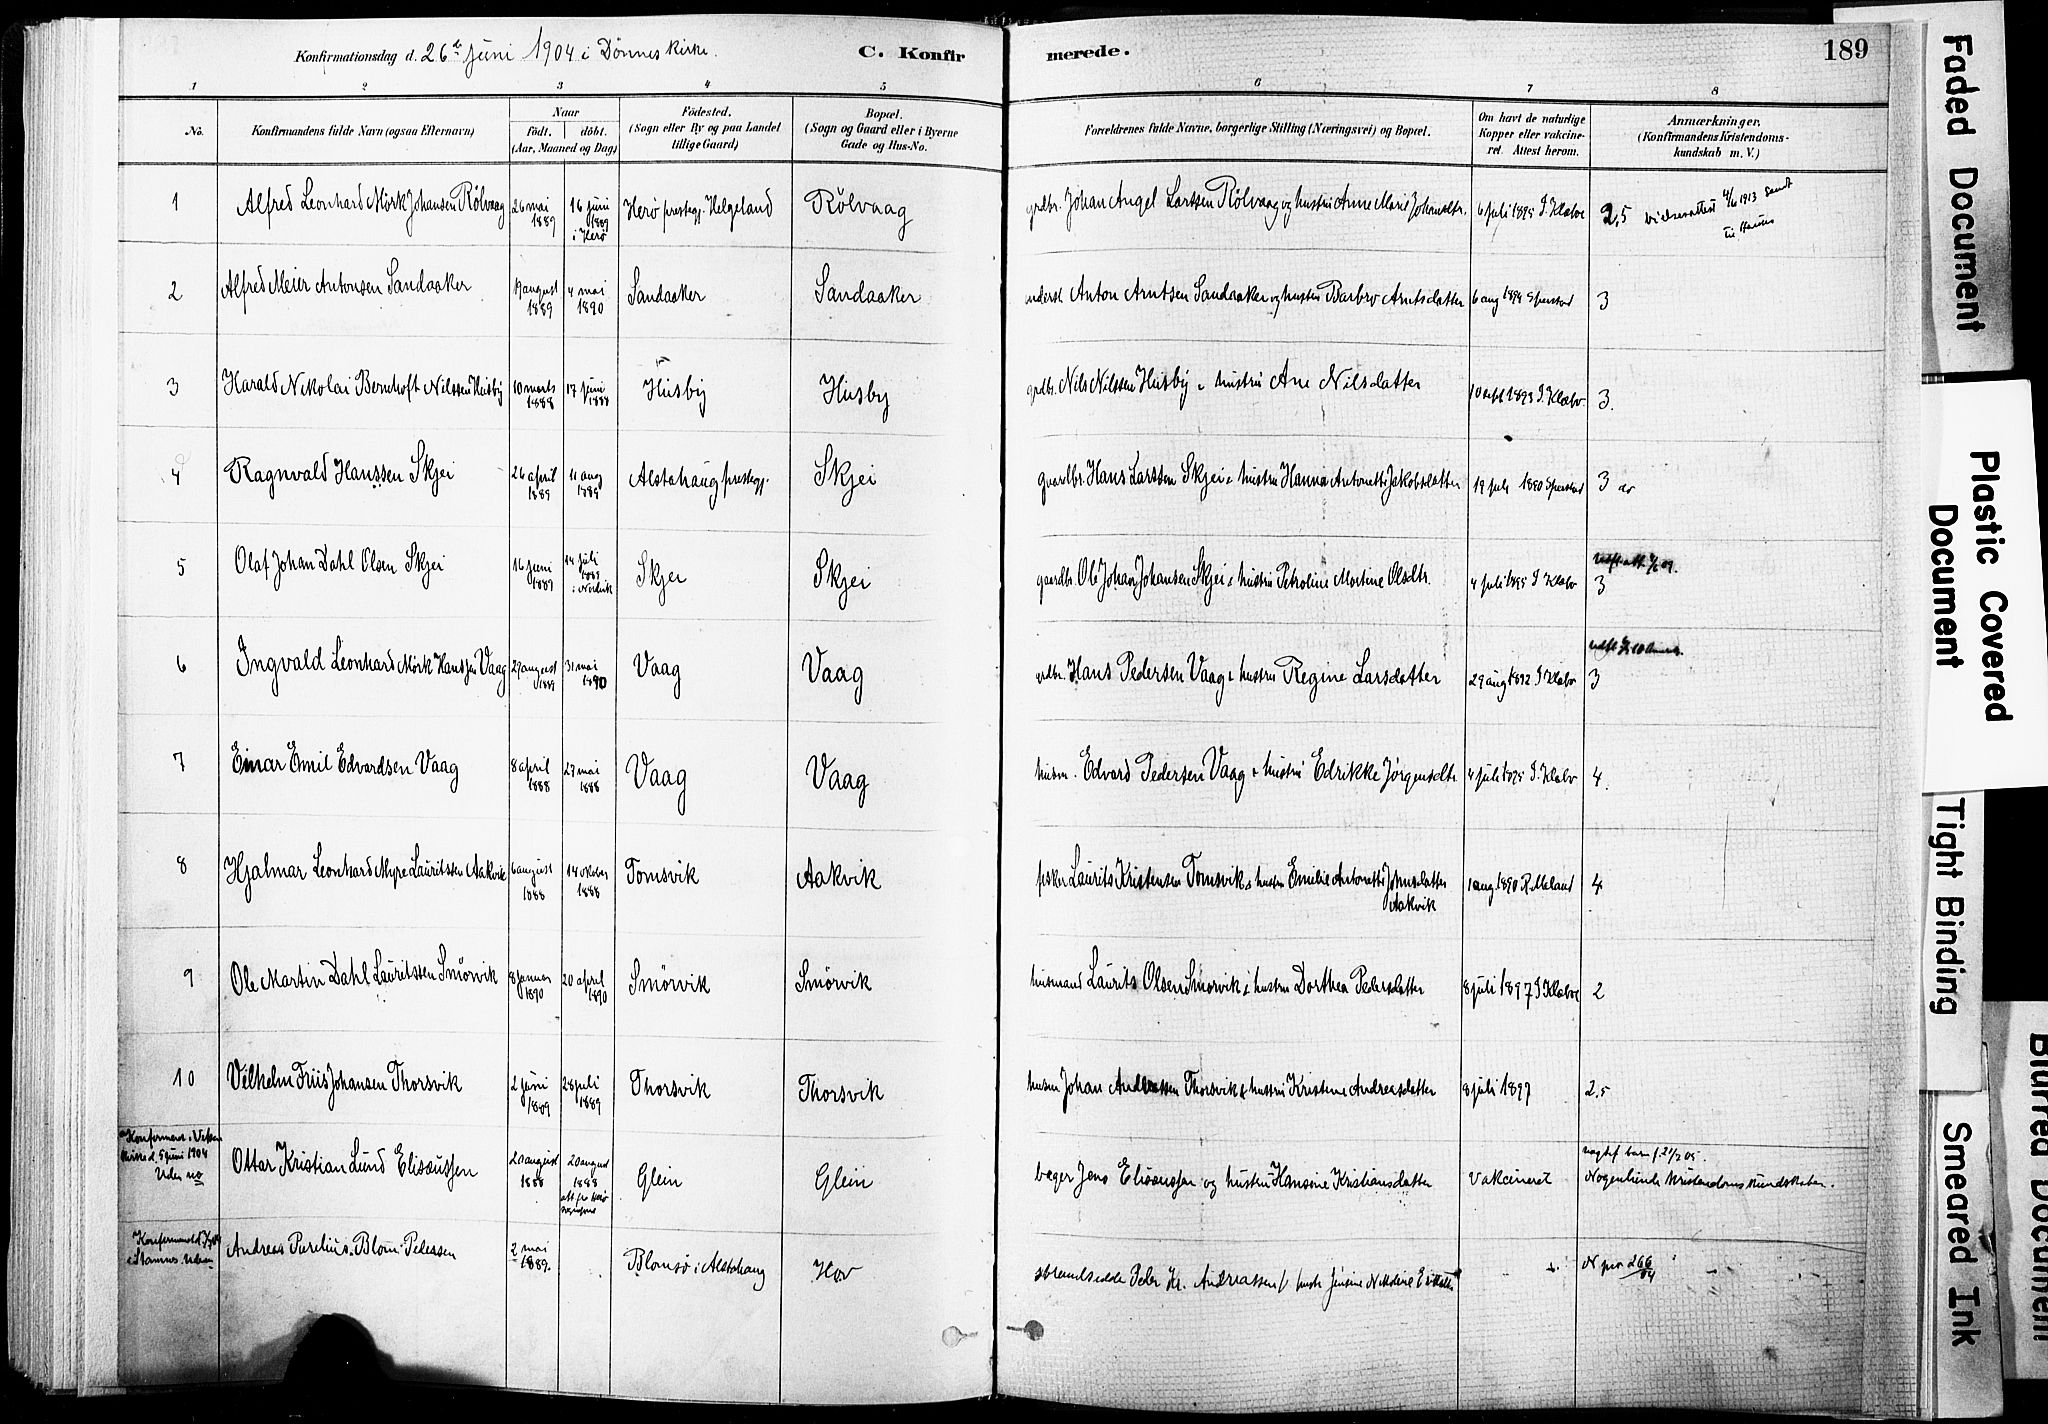 Konfirmationsdag d. 26de Juni 1904 i Dönnes kirke. C. Konfirmerede. 189
1 2 3 4 5 6 7 8
No. Konfirmandens fulde Navn (ogsaa Efternavn) Naar födt. döbt. (Aar, Maaned og Dag) Födested. (Sogn eller By og paa Landet tillige Gaard) Bopæl. (Sogn og Gaard eller i Byerne Gade og Hus-No. Forældrenes fulde Navne, borgerlige Stilling (Næringsvei) og Bopæl. Om havt de naturlige Kopper eller vakcineret. Attest herom. Anmærkninger, (Konfirmandens Kristendomskundskab m. V.)
1 Alfred Leonhard Mörk Johansen Rölvaag 26 mai 1889 16 juni 1889 i Herö Herö prestegj. Helgeland Rölvaag grdbr. Johan Angel Larssen Rölvaag og hustru Anne Marie Johansdtr. 6 juli 1895 J. Klæbo 2,5 4/6 1913 sendt
2 Alfred Meier Antonsen Sandaaker 19 august 1889 4 mai 1890 Sandaaker Sandaaker Anton Arntsen Sandaaker og hustru Barbro Arntsdatter 6 aug 1894 3
3 Harald Nikolai Bernhoft Nilssen Husby 10 marts 1888 17 juni 1888 Husby Husby grdbr. Nils Nilssen Husby & hustru Ane Nilsdatter 10 1893 J. Klæbo. 3.
4 Ragnvald Hanssen Skjei 26 april 1889 11 aug 1889 Alstahaug prestegj. Skjei gaardbr. Hans Larssen Skjei & hustru Hanna Antonette Jakobsdatter 19 juli 3
5 Olaf Johan Dahl Olsen Skjei 16 juni 1889 14 juli 1889 Skjei Skjei gaardbr. Ole Johan Johansen Skjei & hustru Petroline Martine Olsdtr. 4 juli 1895 J Klæbo 3
6 Ingvald Leonhard Mörk Hanssen Vaag 27 august 1889 31 mai 1890 Vaag Vaag grdbr. Hans Pedersen Vaag & hustru Regine Larsdatter 29 aug 1892 J Klæbo 3
7 Einar Emil Edvardsen Vaag 8 april 1888 27 mai 1888 Vaag Vaag husm. Edvard Pedersen Vaag & hustru Edrikke Jörgensdtr 4 juli 1895 J. Klæbo 4.
8 Hjalmar Leonhard Myre Lauritssen Aakvik 6 august 1888 14 oktober 1888 Tomsvik Aakvik fisker Laurits Kristensen Tomsvik & hustru Emilie Antonette Johnsdatter Aakvik 1 aug 1890 R. Meland 4
9 Ole Martin Dahl Lauritssen Smörvik 8 januar 1890 20 april 1890 Smörvik Smörvik husmand Laurits Olsen Smörvik & hustru Dorthea Pedersdatter 8 juli 1897 J Klæboe 2
10 Vilhelm Friis Johansen Thorsvik 2 juni 1889 28 juli 1889 Thorsvik Thorsvik husm Johan Andreassen Thorsvik & hustru Kristine Andreasdatter 8 juli 1897 2,5
Konfirmeret i 5 juni 1904 Uden no Ottar Kristian Lund Elisæussen 20 august 1888 20 august 1888 Glein Glein bager Jens Elisæussen og hustru Hansine Kristiansdatter Vakcineret Nogenlunde kristendomskundskaber.
i Stamnes. Uden Andreas Purelius Blom Pedersen 2 mai 1889. Blomsö i Alstahaug Hov strandsidder Peder Kr. Andreassen N pro 266/04
Faded Document
Plastic Covered Document
Tight Binding
Blurred Document
Smeared Ink